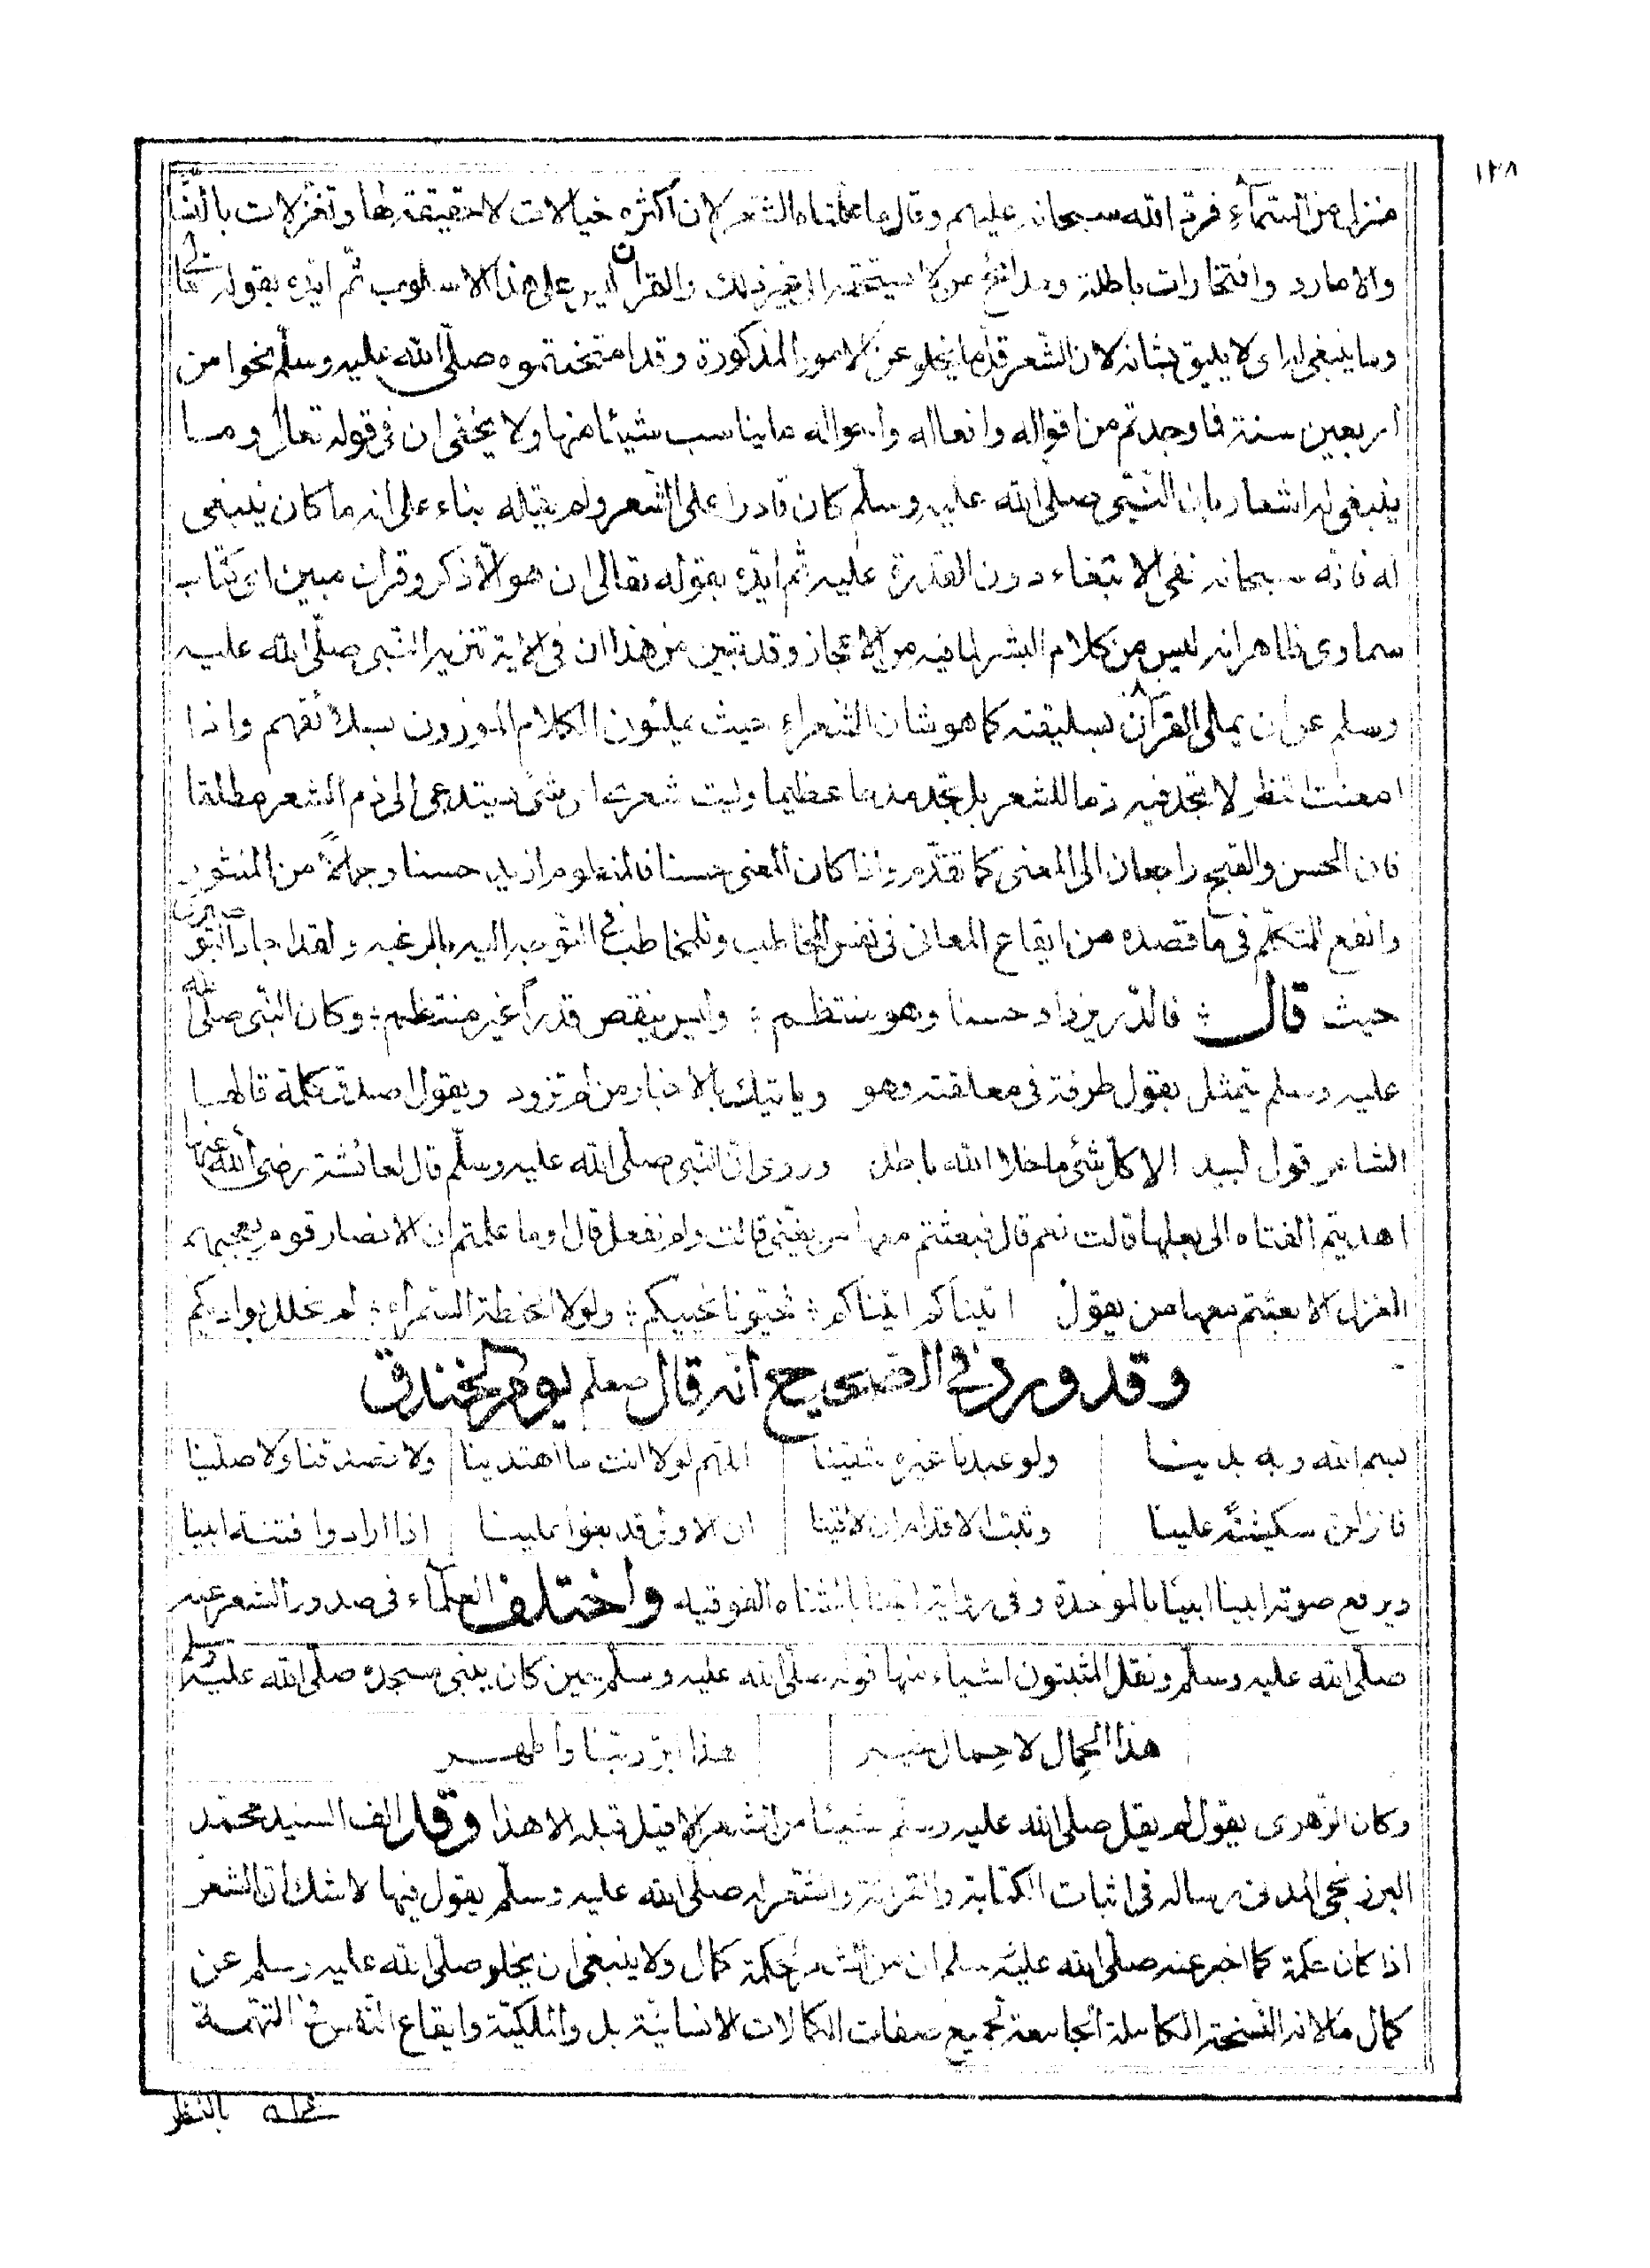 ١٢٨
منزل من السماء فرد الله سبحانه عليهم وقال وما علمناه الشعر لان اكثره خيالات لا حقيقة لها وتغزلات بالنسا
والامارد وافتخارات باطلة ومدائح من لا يستحقه الى غير ذلك والقران ليس على هذا الاسلوب ثم ايده بقوله تعالى
وما ينبغي له اى لا يليق بشانه لان الشعر قلما يخلو عن الامور المذكورة وقد امتحنتموه صلى الله عليه وسلم نحوا من
اربعين سنة فما وجدتم من اقواله وافعاله واحواله ما يناسب شيئا منها ولا يخفى ان فى قوله تعالى وما
ينبغى له اشعار بان النبى صلى الله عليه وسلم كان قادرا على الشعر ولم يقله بناء على انه ما كان ينبغى
له فانه سبحانه نفى الابتغاء دون القدرة عليه ثم ايده بقوله تعالى ان هو الا ذكر وقرآن مبين اى كتاب
سماوى ظاهر انه ليس من كلام البشر لما فيه من الاعجاز وقد تبين من هذا ان فى الآية تنزيه النبى صلى الله عليه
وسلم عن ان يملى القرآن بسليقته كما هو شان الشعراء حيث يملون الكلام الموزون بسلائقهم واذا
امعنت النظر لا تجد فيه ذما للشعر بل تجد مدحا عظيما وليت شعرى اى شئ يستدعى الى ذم الشعر مطلقا
فان الحسن والقبح راجعان الى المعنى كما تقدم واذا كان المعنى حسنا فالمنظوم ازيد حسنا وجمالا من المنثور
وانفع للمتكلم فى ما قصده من ايقاع المعانى فى نفس المخاطب وللمخاطب فى التوجه اليه بالرغبه ولقد اجاد البوصيرى
حيث قال ؛ فالدر يزداد حسنا وهو منتظم ؛ وليس ينقص قدرا غير منتظم ؛ وكان النبى صلى الله
عليه وسلم يتمثل بقول طرفة فى معلقته وهو وياتيك بالاخبار من لم تزود ويقول اصدق كلمة قالها
الشاعر قول لبيد الا كل شئ ما خلا الله باطل وروى ان النبى صلى الله عليه وسلم قال لعائشة رضى الله عنها
اهديتم الفتاه الى بعلها قالت نعم قال فبعثتم معها من يغنى قالت ولم نفعل قال اوما علمتم ان الانصار قوم يعجبهم
الغزل الا بعثتم معها من يقول اتيناكم اتيناكم ؛ فحيونا نحييكم ؛ ولولا الحنطة السمراء ؛ لم نحلل بواديكم
وقد ورد فى الصحيح انه قال صلعم يوم الخندق
بسم الله وبه بدينا ولو عبدنا غيره شقينا اللهم لولا انت ما اهتدينا ولا تصدقنا ولا صلينا
فانزلن سكينة علينا وثبت الاقدام ان لاقينا ان الاولى قد بغوا علينا اذا ارادوا فتنة ابينا
ويرفع صوته ابينا ابينا بالموحدة وفى رواية اتينا بالمثناه الفوقيه واختلف العلماء فى صدور الشعر عنه
صلى الله عليه وسلم ونقل المثبتون اشياء منها قوله صلى الله عليه وسلم حين كان يبنى مسجده صلى الله عليه وسلم
هذا الحمال لا حمال خيبر هذا ابر ربنا واطهر
وكان الزهرى يقول لم يقل صلى الله عليه وسلم شيئا من الشعر الا قيل قبله الا هذا وقد الف السيد محمد
البرزنجى المدنى رسالة فى اثبات الكتابة والقرائة والشعر له صلى الله عليه وسلم يقول فيها لا شك ان الشعر
اذا كان حكمة كما اخبر عنه صلى الله عليه وسلم ان من الشعر لحكمة كمال ولا ينبغى ان يخلو صلى الله عليه وسلم عن
كمال ما لانه النسخة الكاملة الجامعة لجميع صفات الكمالات الانسانية بل والملكية وايقاع الناس فى التهمة
بالنظر